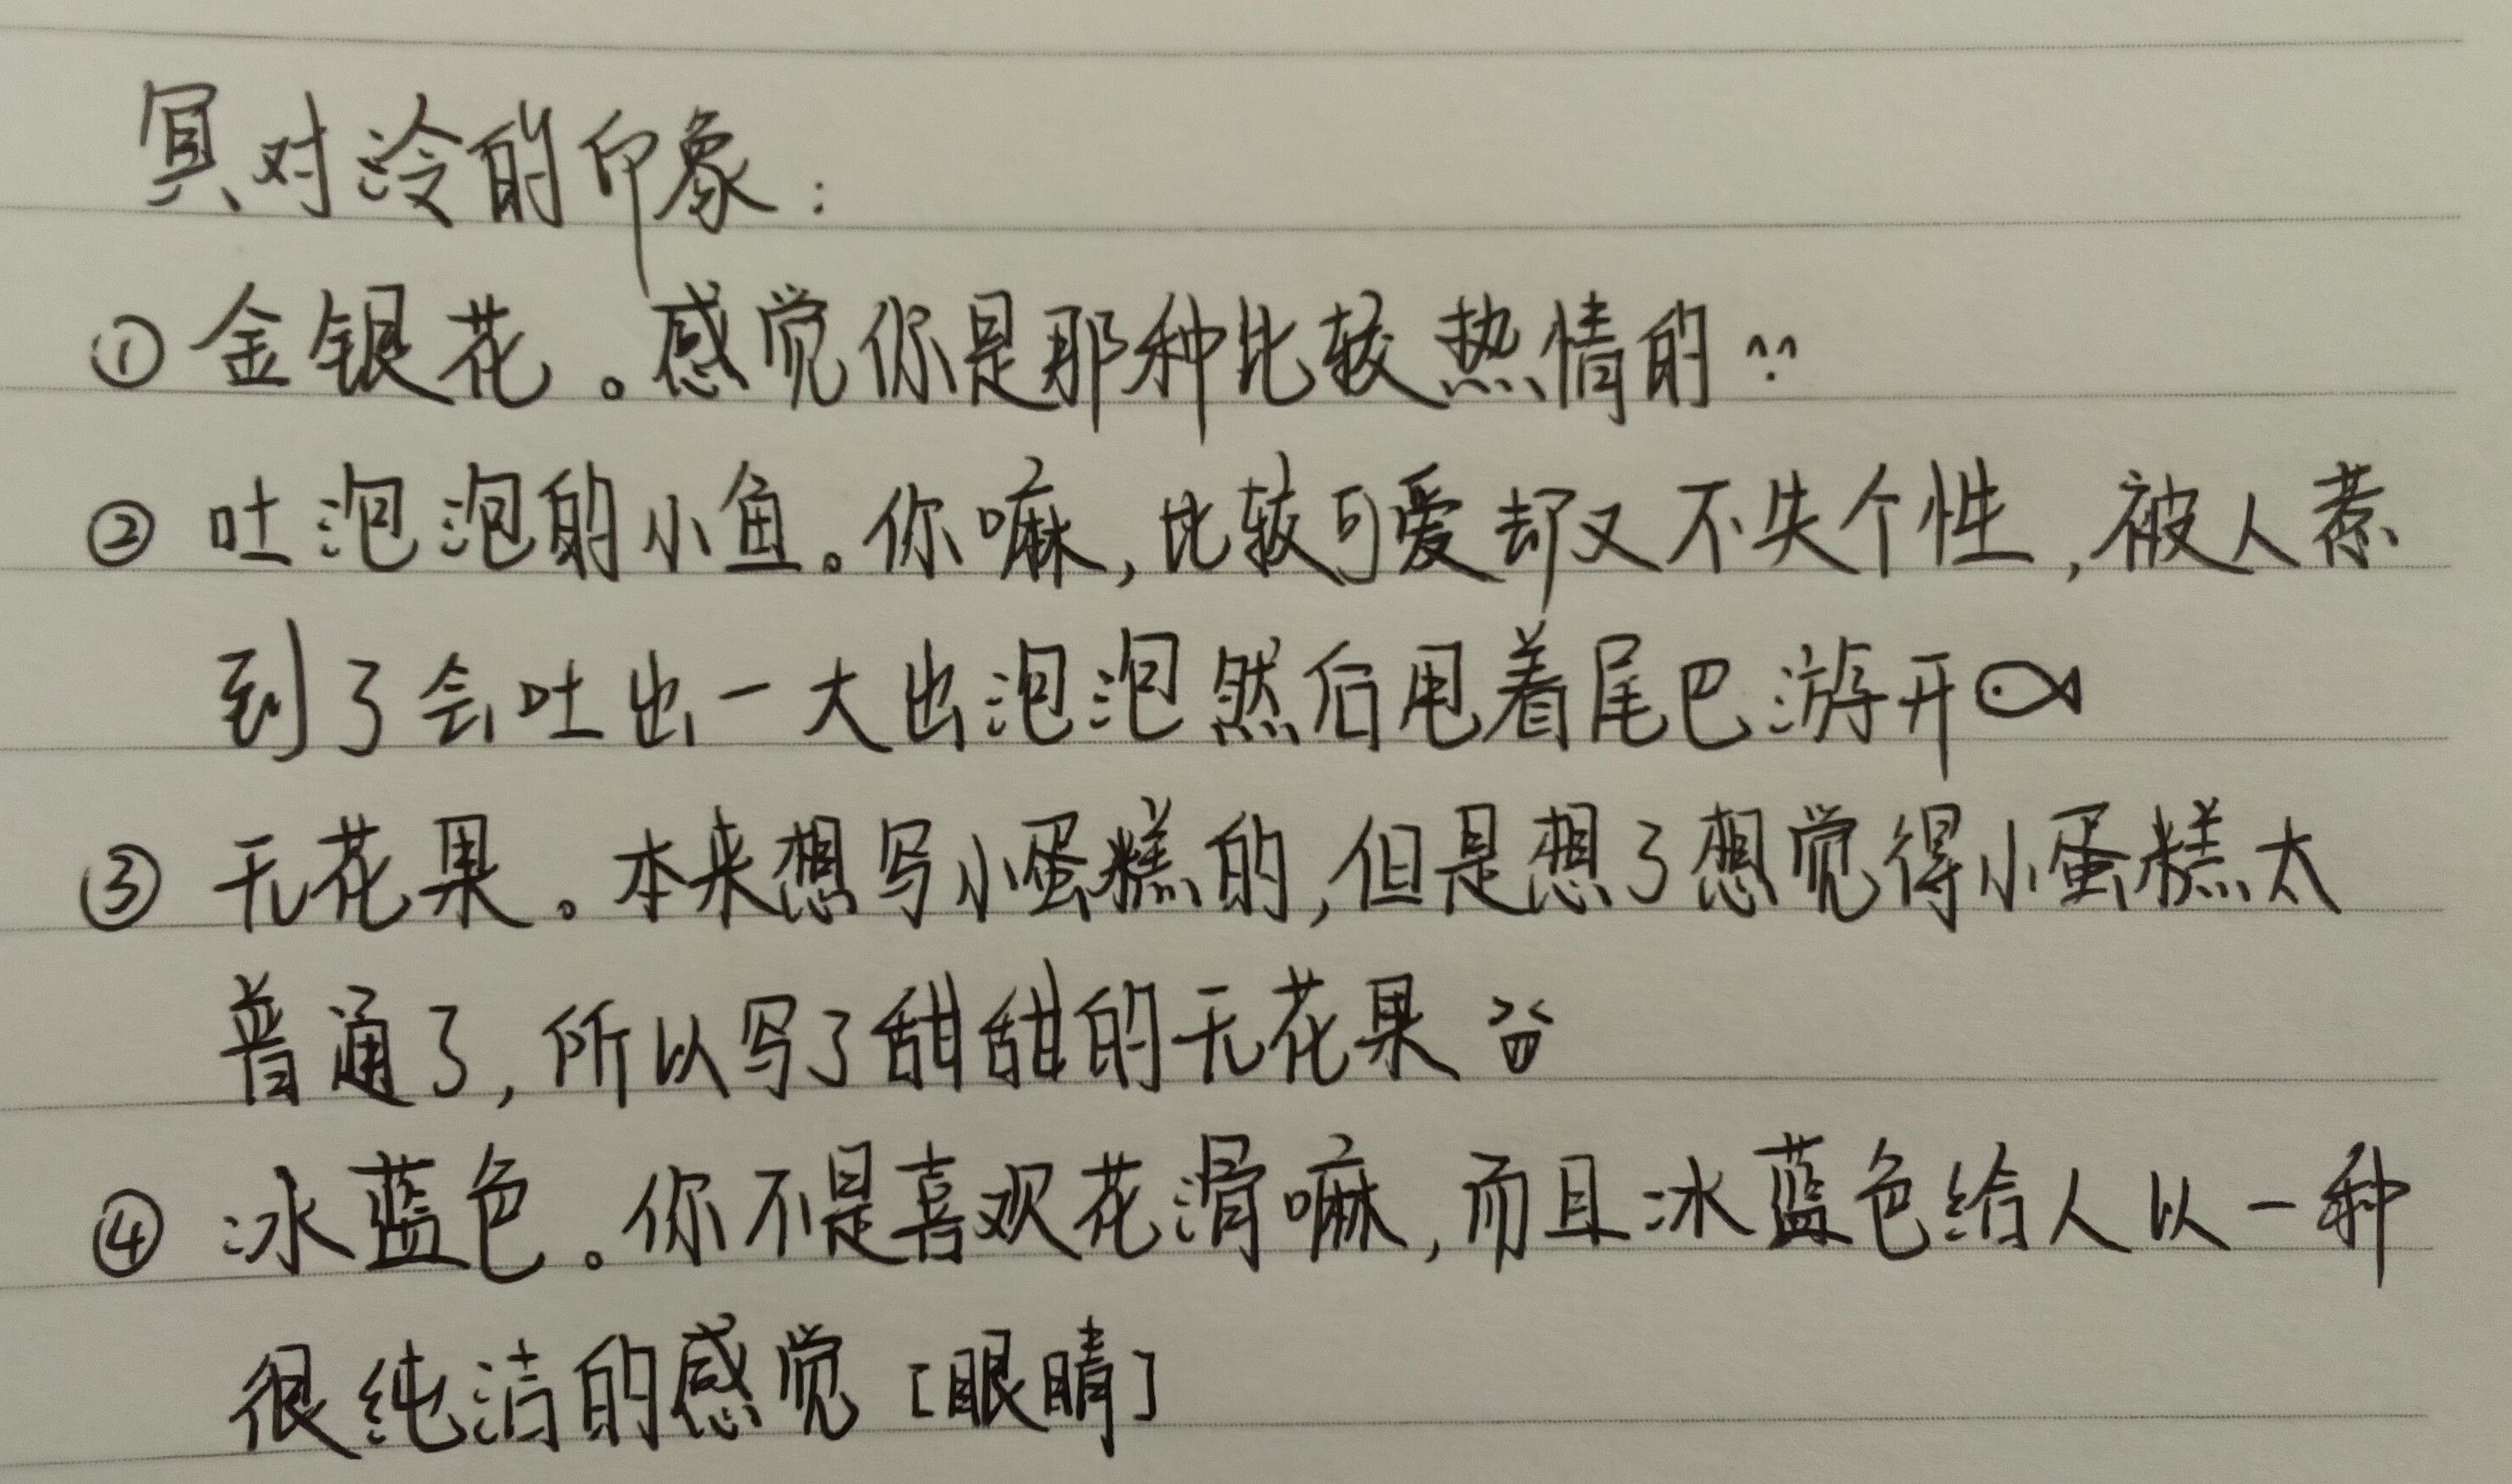 冥对泠的印象：
①金银花。感觉你是那种比较热情的
②吐泡泡的小鱼。你嘛，比较可爱却又不失个性，被人惹
到了会吐出一大出泡泡然后甩着尾巴游开
③无花果。本来想写小蛋糕的，但是想了想觉得小蛋糕太
普通了，所以写了甜甜的无花果
④冰蓝色。你不是喜欢花滑嘛，而且冰蓝色给人以一种
很纯洁的感觉[眼睛]